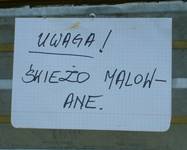 UWAGA!
ŚWIEŻO MALOW-
ANE.